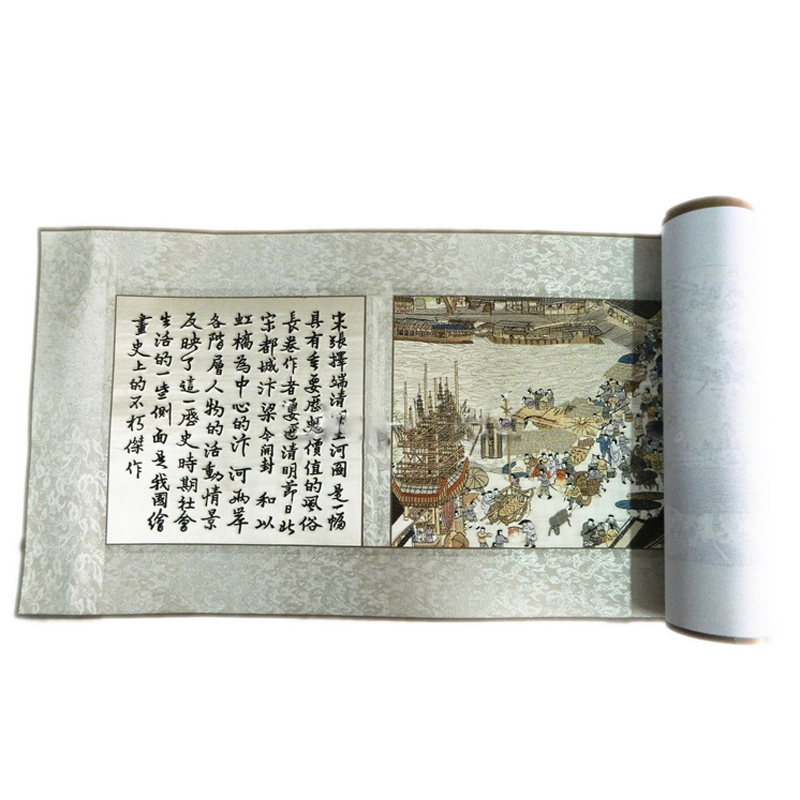 宋張擇端清明上河圖是一幅
具有重要歷史價值的風俗
長卷作者清明節日北
宋都城汴梁今開封 和以
虹橋為中心的汴河兩岸
各階層人物的活動情景
反映了這一歷史時期社會
生活的一些側面是我國繪
畫史上的不朽傑作